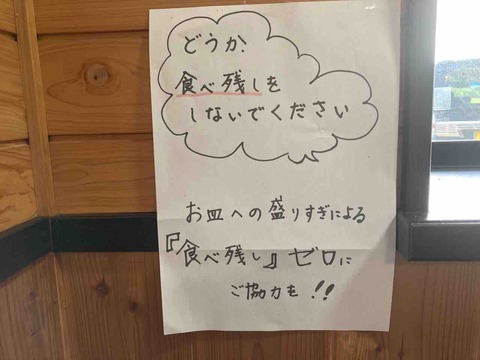 どうか、
食べ残しを
しないでください
お皿への盛りすぎによる
『食べ残し』ゼロに
ご協力を!!